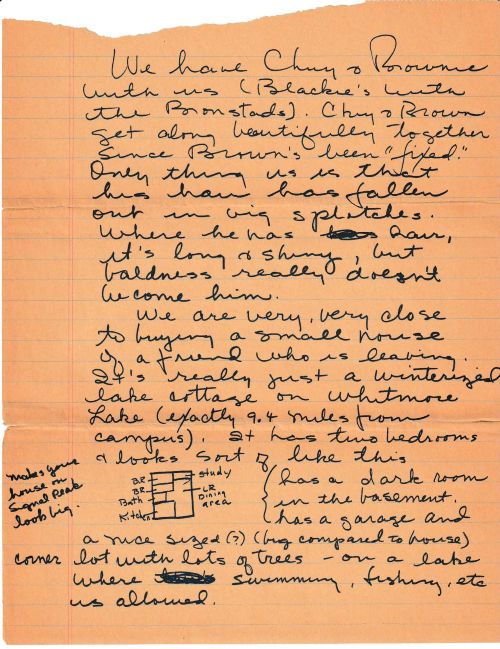 We have Chuy & Brownie
with us (Blackie's with
the Bronstads). Chuy & Brown
get along beautifully together
since Brown's been "fixed."
Only thing us is that
his hair has fallen
out in big splotches.
Where he has hair,
it's long & shiny, but
baldness really doesn't
become him.
We are very, very close
to buying a small house
of a friend who is leaving.
It's really just a winterized
lake cottage on Whitmore
Lake (exactly 9.4 miles from
campus). It has two bedrooms
& looks sort of like this
makes your
house on
Signal Peak
look big.
BR
BR
Bath
Kitchen
study
LR
Dining
area
(has a dark room
in the basement.
has a garage and
a nice sized (?) (big compared to house)
corner lot with lots of trees – on a lake
where swimming, fishing, etc
is allowed.